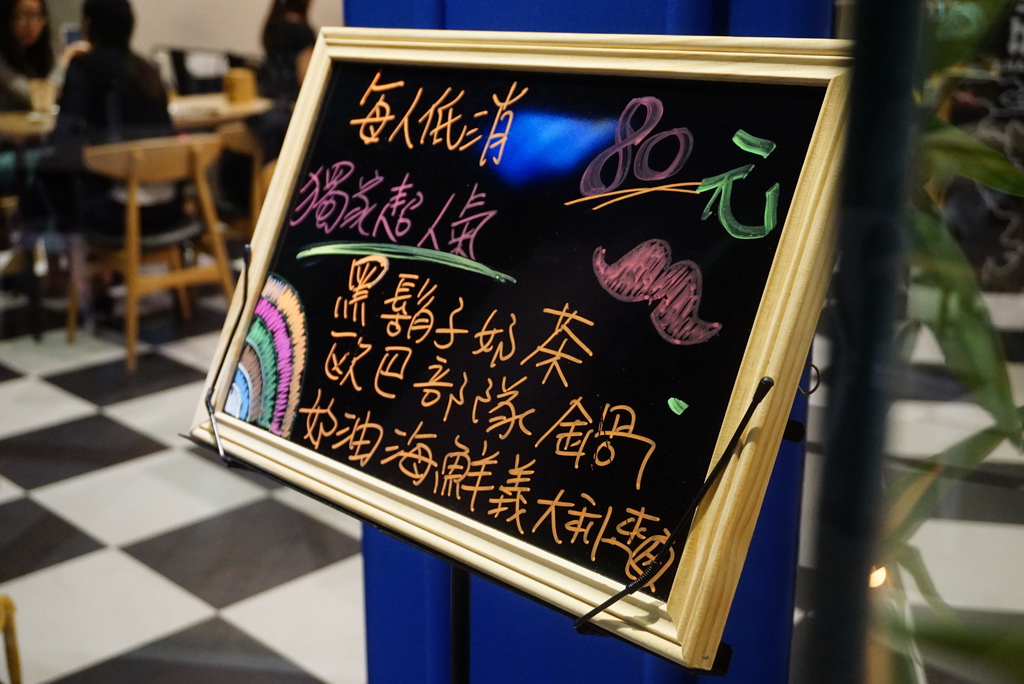 每人低消 80元
獨家超人氣
黑鬍子奶茶
歐巴部隊鍋
奶油海鮮義大利麵